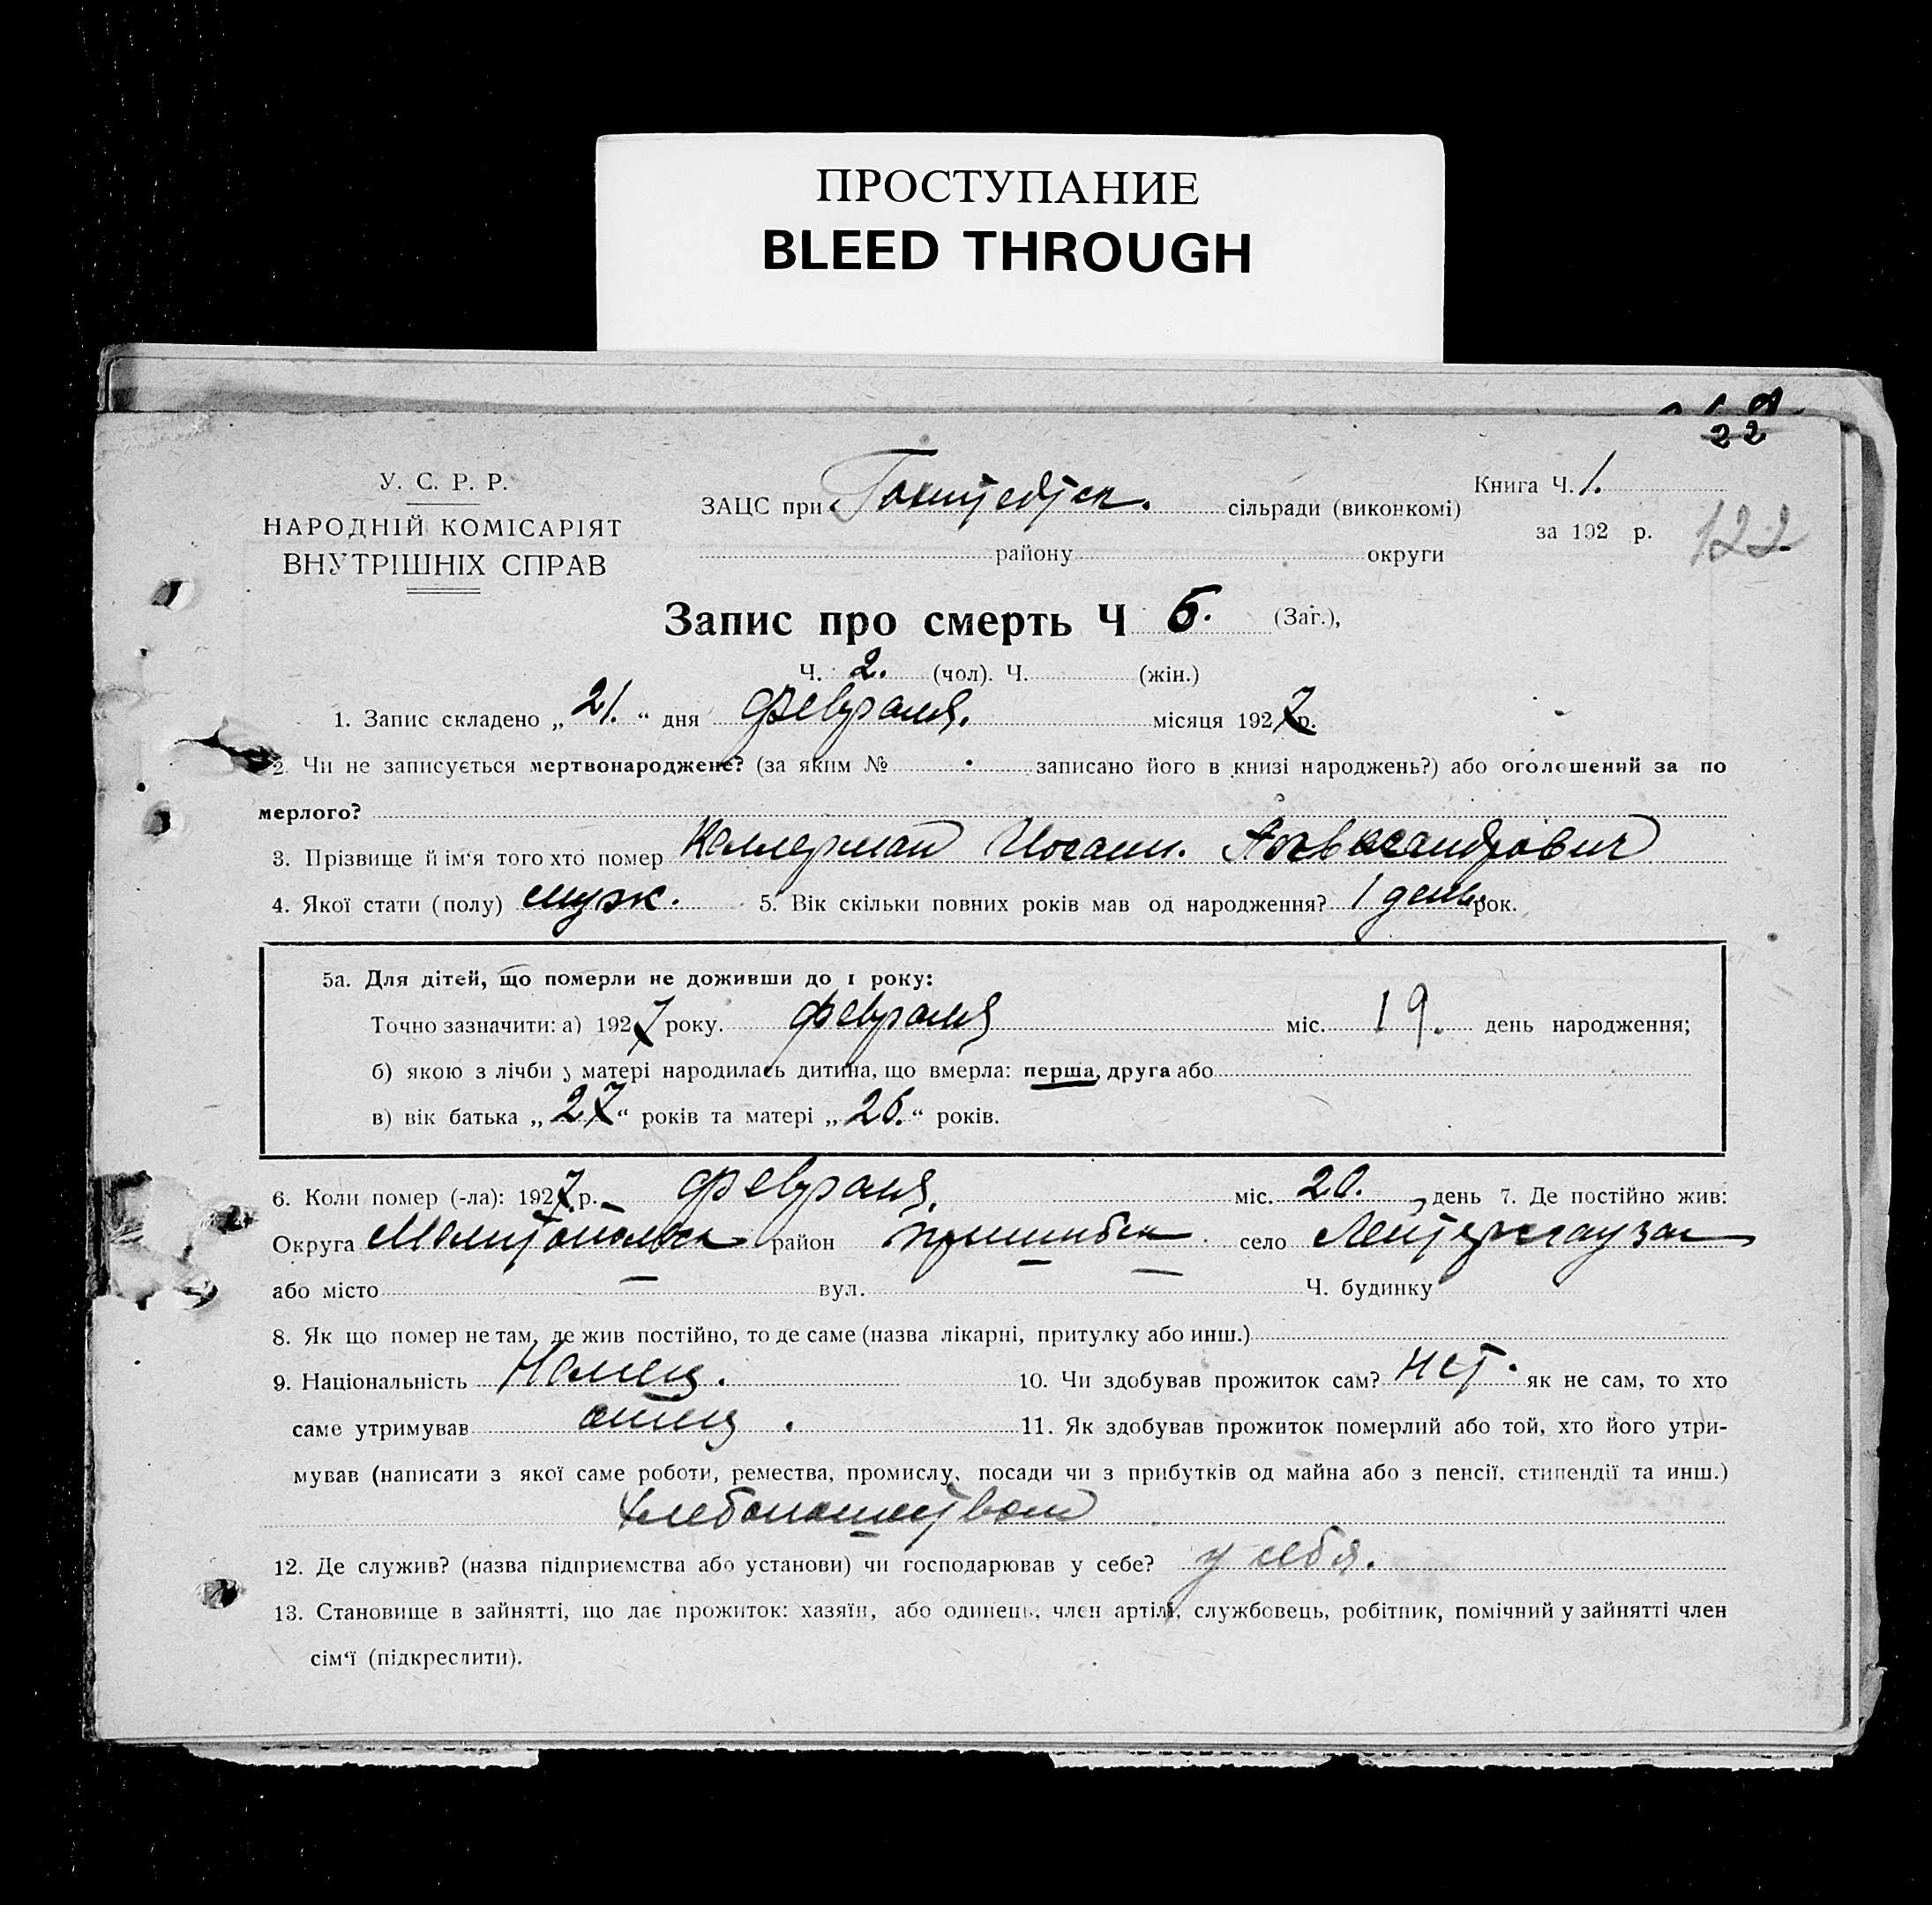 ПРОСТУПАНИЕ
BLEED THROUGH
22
У. С. Р. Р.
НАРОДНІЙ КОМІСАРІЯТ
ВНУТРІШНІХ СПРАВ
ЗАЦС при сільради (виконкомі)
району округи
Книга Ч. 1.
за 192 р.
122
Запис про смерть Ч 6. (Заг.),
Ч. 2. (чол). Ч. (жін.)
1. Запис складено „ 21. “ дня февраля. місяця 1927 р.
2. Чи не записується мертвонароджене? (за яким № записано його в книзі народжень?) або оголошений за по
мерлого?
3. Прізвище й ім‘я того хто помер Келлерман Иоганн. Александрович
4. Якої стати (полу) муж. 5. Вік скільки повних років мав од народження? 1 день рок.
5а. Для дітей, що померли не доживши до 1 року:
Точно зазначити: а) 1927 року. февраля міс. 19. день народження;
б) якою з лічби у матері народилась дитина, що вмерла: перша, друга або
в) вік батька „ 27 “ років та матері „ 26. “ років.
6. Коли помер (-ла): 1927 р. февраля. міс. 20. день 7. Де постійно жив:
Округа Мелитопольск район Пришибск село
або місто — вул. — Ч. будинку
8. Як що помер не там, де жив постійно, то де саме (назва лікарні, притулку або инш.)
9. Національність Немец. 10. Чи здобував прожиток сам? нет. як не сам, то хто
саме утримував отец. 11. Як здобував прожиток померлий або той, хто його утри-
мував (написати з якої саме роботи, ремества, промислу, посади чи з прибутків од майна або з пенсії, стипендії та инш.)
хлебопашеством
12. Де служив? (назва підприємства або установи) чи господарював у себе? у себя.
13. Становище в зайнятті, що дає прожиток: хазяїн, або одинець, член артілі, службовець, робітник, помічний у зайнятті член
сім‘ї (підкреслити).